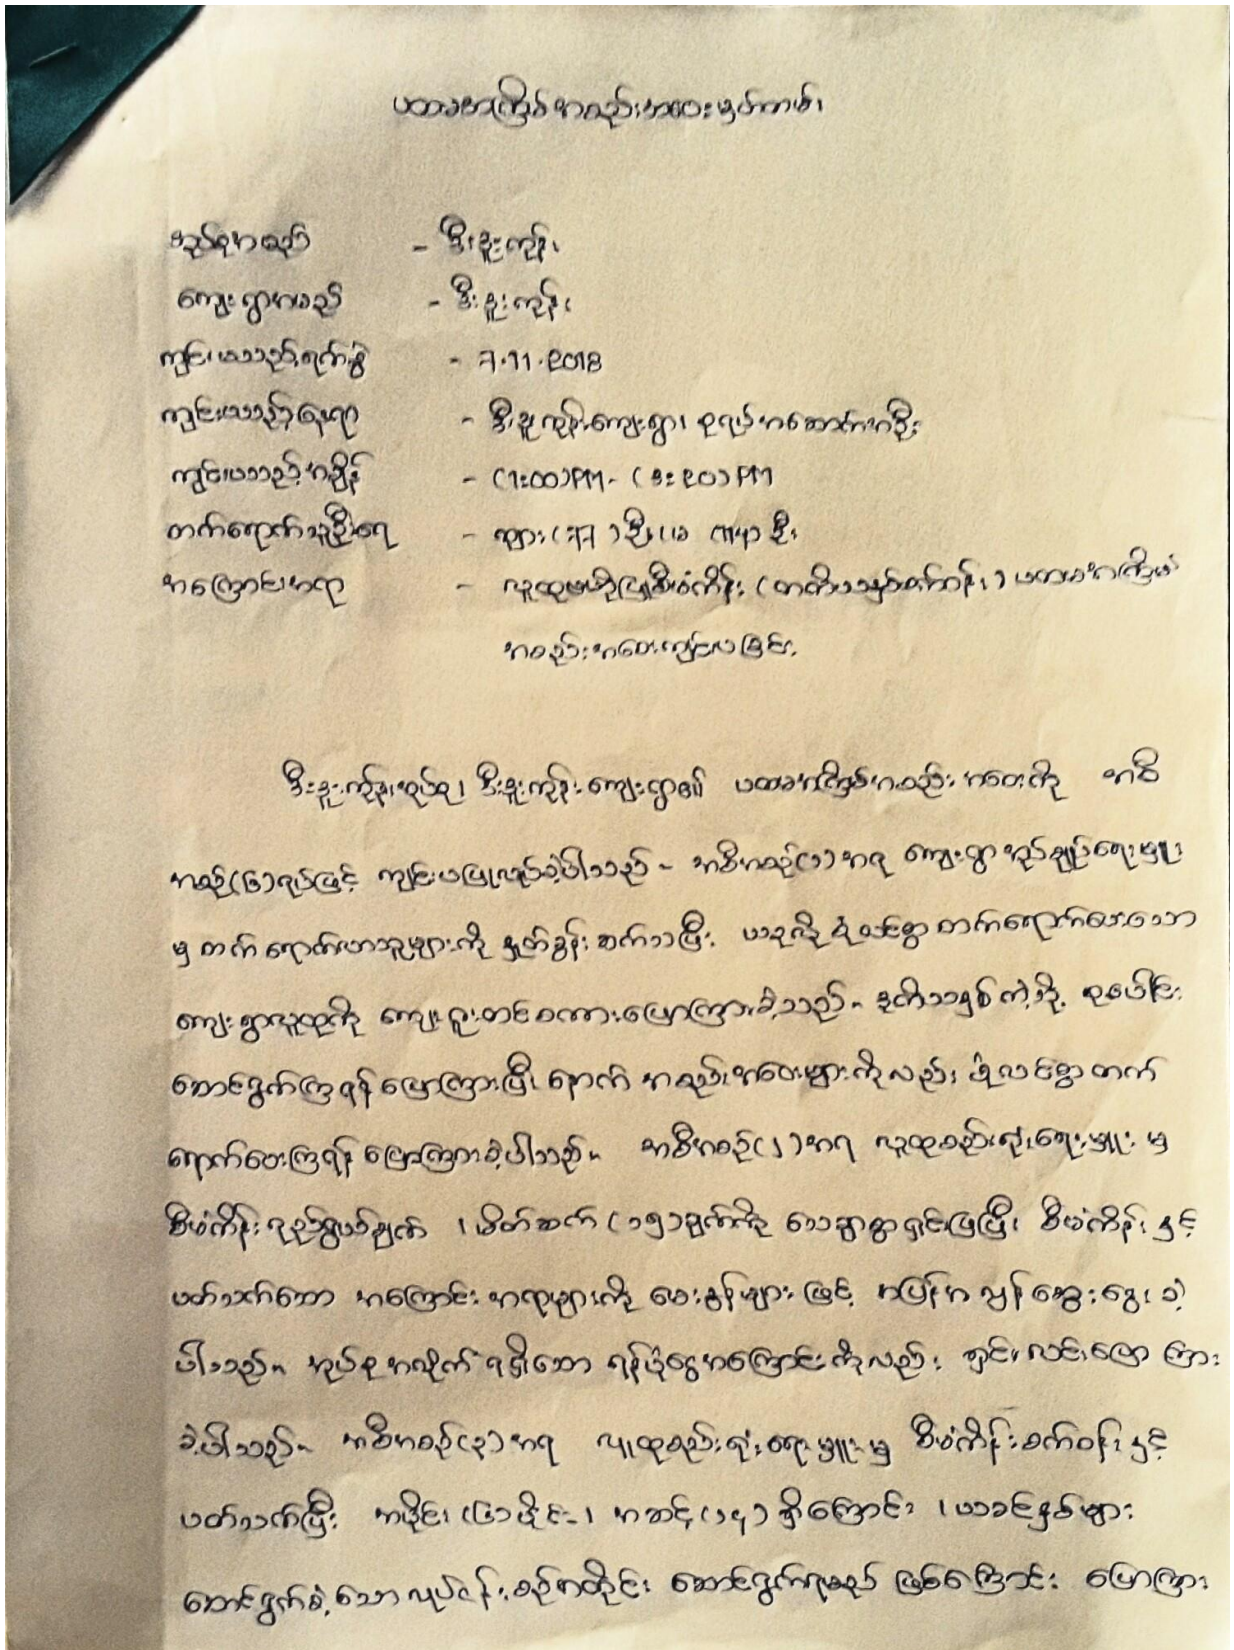 ပထမအကြိမ်အစည်းအဝေးမှတ်တမ်း
အုပ်စုအမည် - ဒီးဒူးကုန်း
ကျေးရွာအမည် - ဒီးဒူးကုန်း
ကျင်းပသည့်ရက်စွဲ - 7.11.2018
ကျင်းပသည့်နေရာ - ဒီးဒူးကုန်းကျေးရွာ၊ စုရပ်အဆောက်အဦး
ကျင်းပသည့်အချိန် - (1:00)PM - (3:20)PM
တက်ရောက်သူဦးရေ -
အကြောင်းအရာ - လူထုဗဟိုပြုစီမံကိန်း (တတိယနှစ်စက်ဝန်း) ပထမအကြိမ်
အစည်းအဝေးကျင်းပခြင်း
ဒီးဒူးကုန်းအုပ်စု၊ ဒီးဒူးကုန်းကျေးရွာ၏ ပထမအကြိမ်အစည်းအဝေးကို အစီ
အစဉ်(၆)ရပ်ဖြင့် ကျင်းပပြုလုပ်ခဲ့ပါသည်။ အစီအစဉ်(၁)အရ ကျေးရွာအုပ်ချုပ်ရေးမှူး
မှ တက်ရောက်လာသူများကို နှုတ်ခွန်းဆက်သပြီး ယခုလို စုံလင်စွာတက်ရောက်ပေးသော
ကျေးရွာလူထုကို ကျေးဇူးတင်စကားပြောကြားခဲ့သည်။ ဒုတိယနှစ်ကဲ့သို့ စုပေါင်း
ဆောင်ရွက်ကြရန် ပြောကြားပြီး နောက် အစည်းအဝေးများကိုလည်း စုံလင်စွာတက်
ရောက်ပေးကြရန် ပြောကြားခဲ့ပါသည်။ အစီအစဉ်(၂)အရ လူထုစည်းရုံးရေးမှူး မှ
စီမံကိန်းရည်ရွယ်ချက် ၊ မိတ်ဆက် (၁၅)ချက်ကို သေချာစွာရှင်းပြပြီး စီမံကိန်း နှင့်
ပတ်သက်သော အကြောင်းအရာများကို မေးခွန်းများ ဖြင့် အပြန်အလှန်ဆွေးနွေး ခဲ့
ပါသည်။ အုပ်စုအလိုက် ရရှိသော ရန်ပုံငွေအကြောင်းကိုလည်း ရှင်းလင်းပြောကြား
ခဲ့ပါသည်။ အစီအစဉ်(၃)အရ လူထုစည်းရုံးရေးမှူးမှ စီမံကိန်းစက်ဝန်း နှင့်
ပတ်သက်ပြီး အပိုင်း (၆)ပိုင်း ၊ အဆင့်(၁၄) ရှိကြောင်း ၊ ယခင်နှစ်များ
ဆောင်ရွက်ခဲ့သော လုပ်ငန်းစဉ်အတိုင်း ဆောင်ရွက်ရမည် ဖြစ်ကြောင်း ပြောကြား